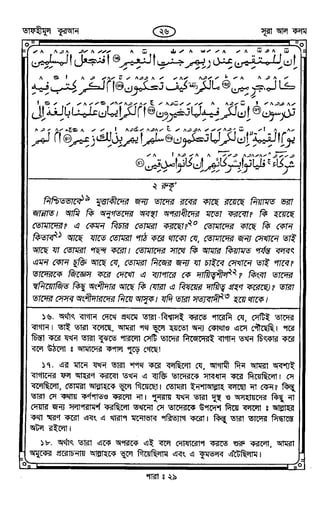 তাফহীমুল কুরআন
২৬
সূরা আল কলম
إِنَّ لِلْمُتَّقِينَ عِنْدَ رَبِّهِمْ جَنَّتِ النَّعِيمِ ۝ أَفَنَجْعَلُ الْمُسْلِمِينَ
كَالْمُجْرِمِينَ ۝ مَا لَكُمْ كَيْفَ تَحْكُمُونَ ۝ أَمْ لَكُمْ كِتٰبٌ فِيهِ
تَدْرُسُونَ ۝ إِنَّ لَكُمْ فِيهِ لَمَا تَخَيَّرُونَ ۝ أَمْ لَكُمْ أَيْمَانٌ عَلَيْنَا بَالِغَةٌ إِلَى
يَوْمِ الْقِيٰمَةِ ۙ إِنَّ لَكُمْ لَمَا تَحْكُمُونَ ۝ سَلْهُمْ أَيُّهُمْ بِذٰلِكَ زَعِيمٌ ۝ أَمْ لَهُمْ
شُرَكَاءُ ۚ فَلْيَأْتُوا بِشُرَكَائِهِمْ إِنْ كَانُوا صٰدِقِينَ ۝
২ রুকূ'
নিশ্চিতভাবে১৯ মুত্তাকীদের জন্য তাদের রবের কাছে রয়েছে নিয়ামত ভরা
জান্নাত। আমি কি অনুগতদের অবস্থা অপরাধীদের মতো করবো? কি হয়েছে
তোমাদের? এ কেমন বিচার তোমরা করছো?২০ তোমাদের কাছে কি কোন
কিতাব২১ আছে যাতে তোমরা পাঠ করে থাকো যে, তোমাদের জন্য সেখানে তাই
আছে যা তোমরা পছন্দ করো। তোমাদের সাথে কি আমার কিয়ামত পর্যন্ত বলবৎ
এমন কোন চুক্তি আছে যে, তোমরা নিজের জন্য যা চাইবে সেখানে তাই পাবে?
তাদেরকে জিজ্ঞেস করে দেখো এ ব্যাপারে কে দায়িত্বশীল২২? কিংবা তাদের
স্বনিয়োজিত কিছু অংশীদার আছে কি (যারা এ বিষয়ের দায়িত্ব গ্রহণ করেছে)? তারা
তাদের সেসব অংশীদারদের নিয়ে আসুক। যদি তারা সত্যবাদী২৩ হয়ে থাকে।
১৬. অর্থাৎ বাগান দেখে প্রথমে তারা বিশ্বাসই করতে পারেনি যে, সেটিই তাদের
বাগান। তাই তারা বলেছে, আমরা পথ ভুলে হয়তো অন্য কোথাও এসে পৌঁছেছি। পরে
চিন্তা করে যখন তারা বুঝতে পারলো সেটি তাদের নিজেদেরই বাগান তখন চিৎকার করে
বলে উঠলো ঃ আমাদের কপাল পুড়ে গেছে!
১৭. এর মানে যখন তারা শপথ করে বলছিলো যে, আগামী দিন আমরা অবশ্যই
বাগানের ফল আহরণ করবো তখন এ ব্যক্তি তাদেরকে সাবধান করে দিয়েছিলো। সে
বলেছিলো, তোমরা আল্লাহকে ভুলে গিয়েছো। তোমরা ইনশাআল্লাহ বলছো না কেন? কিন্তু
তারা সে কথায় কর্ণপাতও করলো না। পুনরায় যখন তারা দুস্থ ও অসহায়দের কিছু না
দেয়ার জন্য সলাপরামর্শ করছিলো তখনো সে তাদেরকে উপদেশ দিয়ে বললো ঃ আল্লাহর
কথা স্মরণ করো এবং এ খারাপ মনোভাব পরিত্যাগ করো। কিন্তু তারা তাদের সিদ্ধান্তে
অটল রইলো।
১৮. অর্থাৎ তারা একে অপরকে এই বলে দোষারোপ করতে শুরু করলো, আমরা
অমুকের প্ররোচনায় আল্লাহকে ভুলে গিয়েছিলাম এবং এ কুমতলব এঁটেছিলাম।
পারা ঃ ২৯